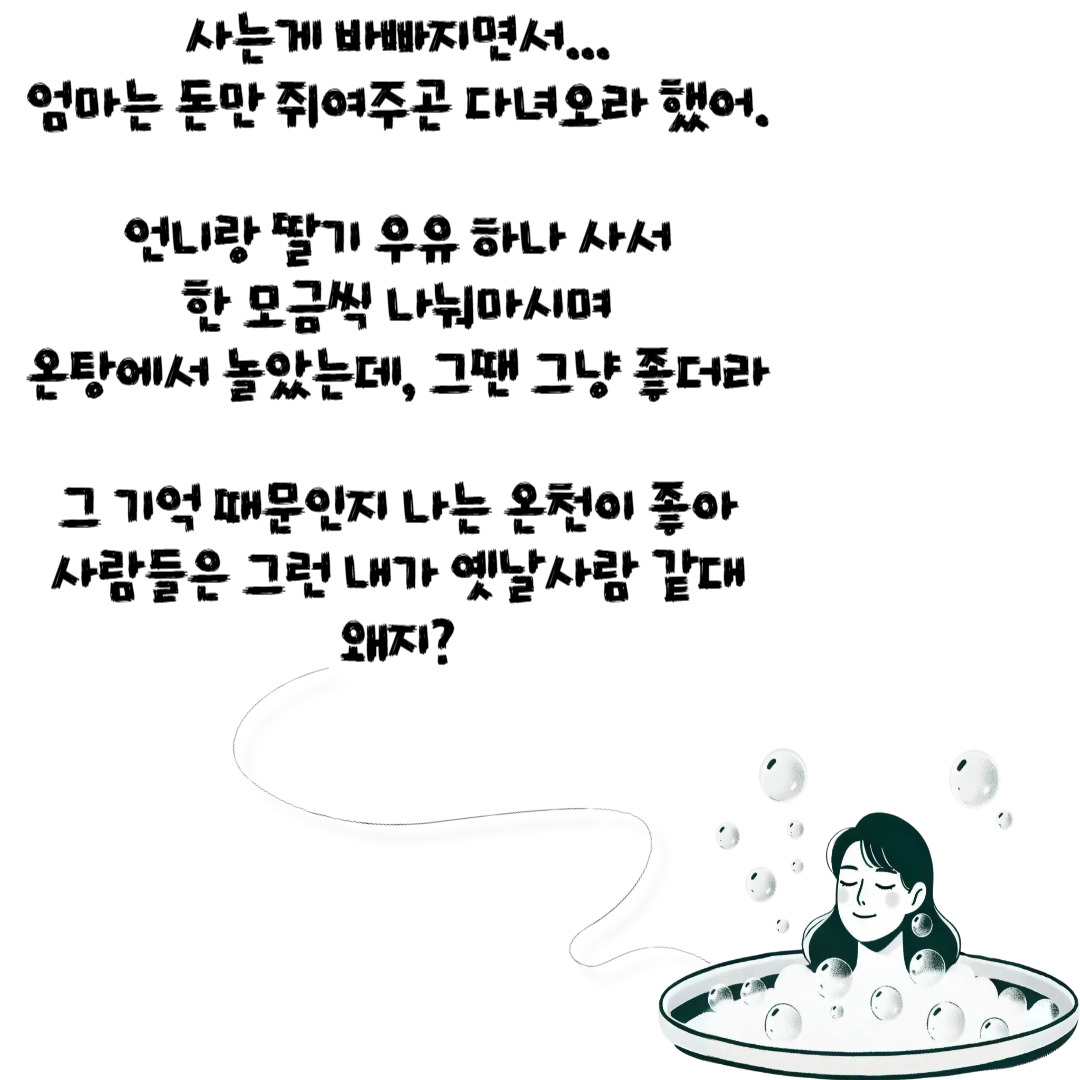 사는게 바빠지면서...
엄마는 돈만 쥐여주곤 다녀오라 했어.
언니랑 딸기 우유 하나 사서
한 모금씩 나눠마시며
온탕에서 놀았는데, 그땐 그냥 좋더라
그 기억 때문인지 나는 온천이 좋아
사람들은 그런 내가 옛날사람 같대
왜지?